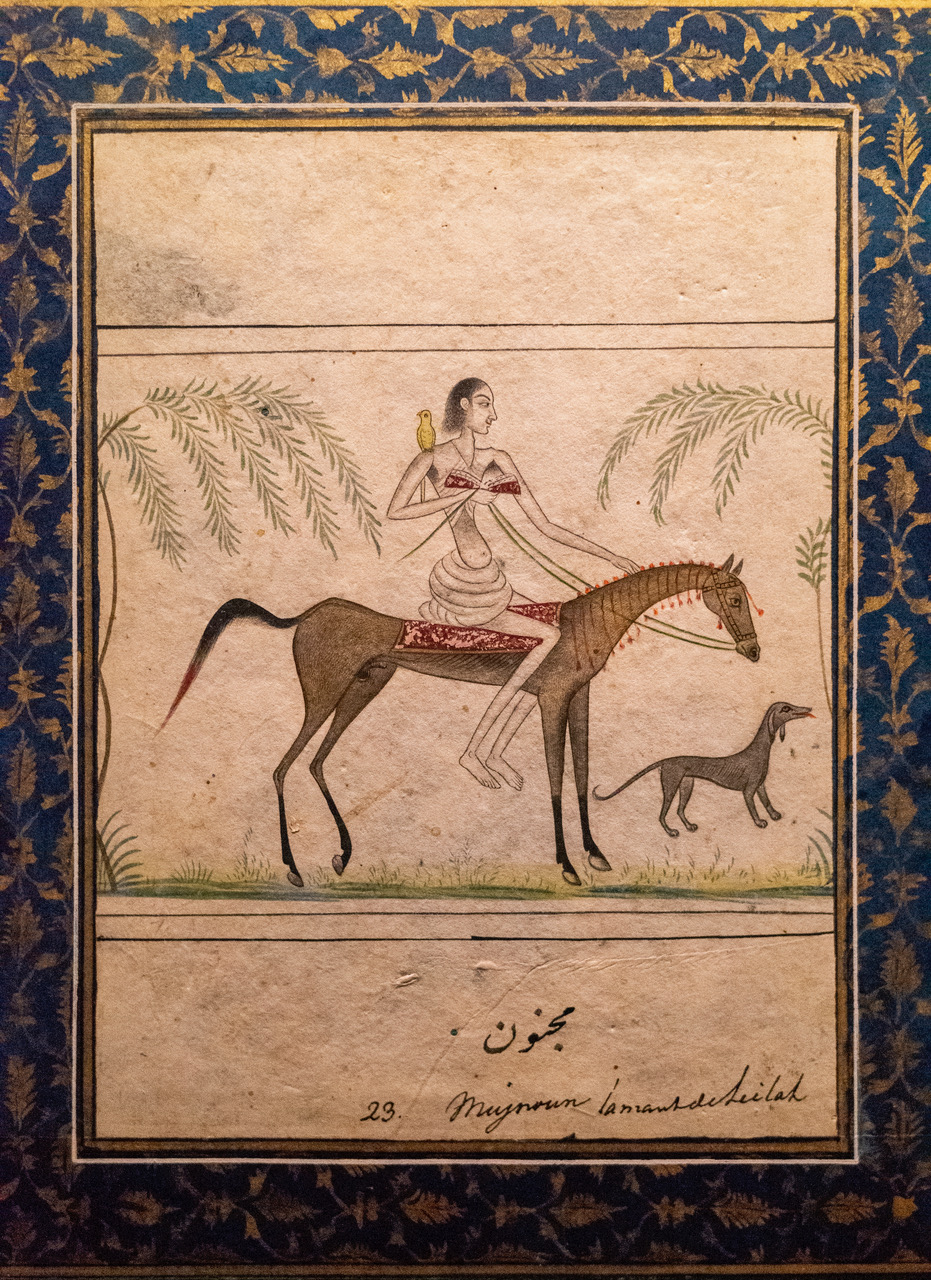 مجنون
23. Mujnoun l'amant de Leilah